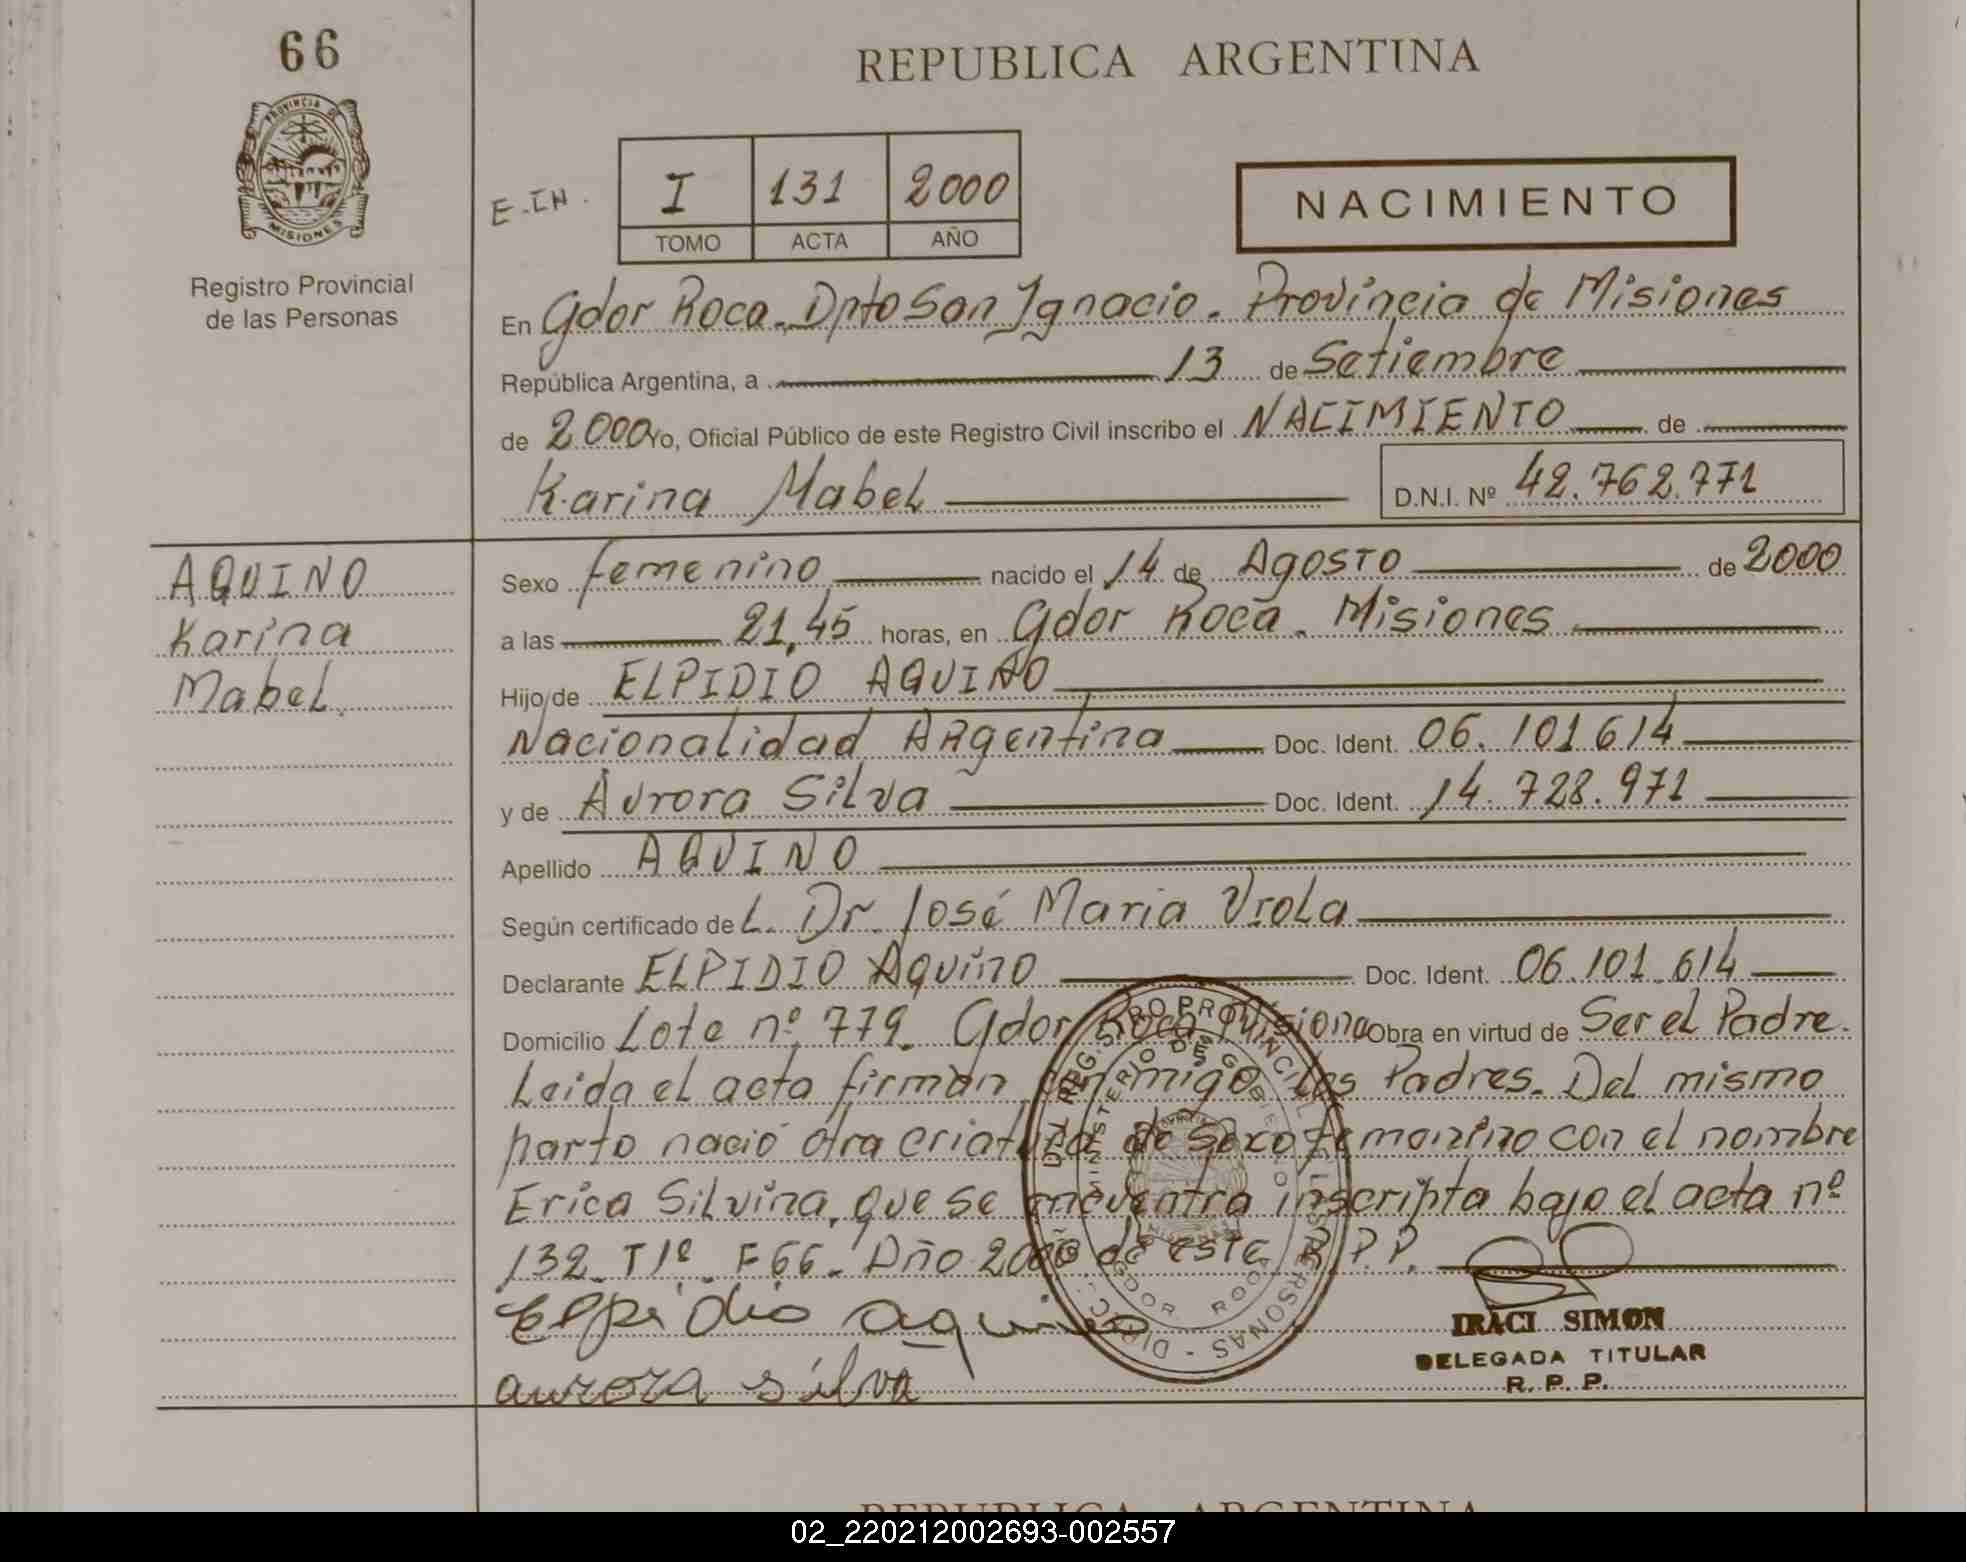 66
REPUBLICA ARGENTINA
PROVINCIA DE
MISIONES
E-IN.
I 131 2000
TOMO ACTA AÑO
NACIMIENTO
Registro Provincial
de las Personas
En Gdor Roca. Dpto San Ignacio. Provincia de Misiones
República Argentina, a 13 de Setiembre
de 2000 Yo, Oficial Público de este Registro Civil inscribo el NACIMIENTO de
Karina Mabel D.N.I. Nº 42.762.771
AQUINO
Karina
Mabel.
Sexo femenino nacido el 14 de Agosto de 2000
a las 21,45 horas, en Gdor Roca. Misiones
Hijo/de ELPIDIO AQUINO
Nacionalidad Argentina Doc. Ident. 06.101.614
y de Aurora Silva Doc. Ident. 14.728.971
Apellido AQUINO
Según certificado de L. Dr. José Maria Viola
Declarante ELPIDIO Aquino Doc. Ident. 06.101.614
Domicilio Lote nº 779. Gdor Roca Misiones Obra en virtud de Ser el Padre.
Leida el acta firman conmigo los Padres. Del mismo
parto nació otra criatura de sexo femenino con el nombre
Erica Silvina, que se encuentra inscripta bajo el acta nº
132. T1º. F66. Año 2000 de este R.P.P.
Elpidio aquino
aurora silva
MINISTERIO DE GOBIERNO
GDOR ROCA
IRACI SIMON
DELEGADA TITULAR
R. P. P.
REPUBLICA ARGENTINA
02_220212002693-002557